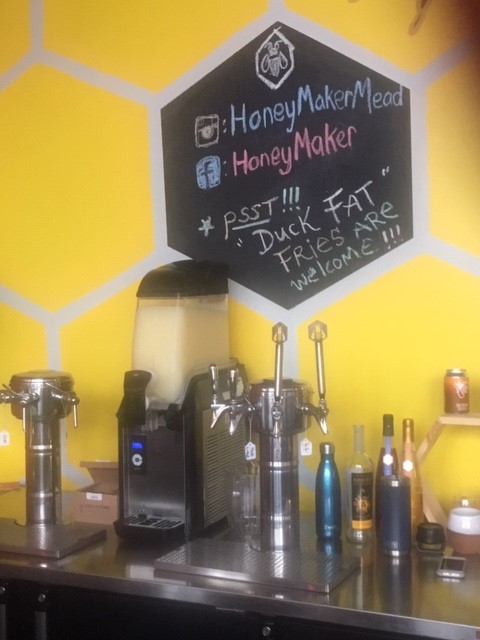 : HoneyMakerMead
f : HoneyMaker
* PSST!!!
"Duck FAT"
FRIES ARE
welcome!!!